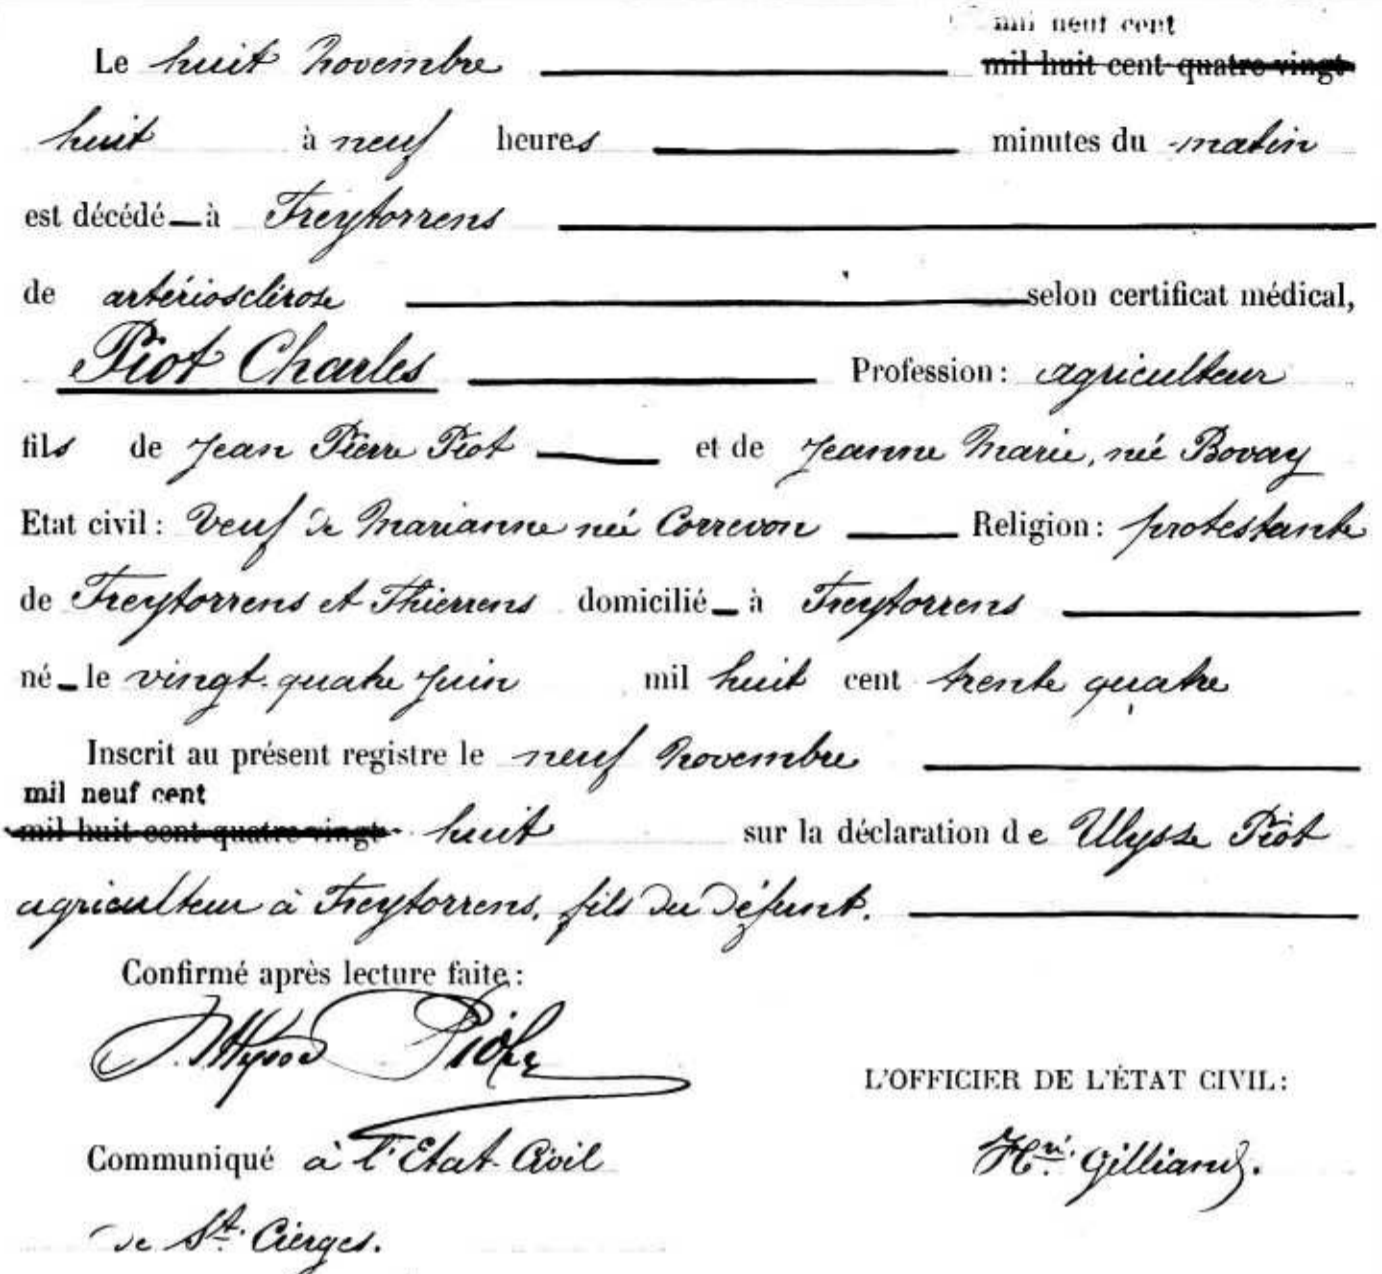 mil neuf cent
Le huit Novembre mil huit cent quatre-vingt
huit à neuf heures minutes du matin
est décédé à Treytorrens
de artériosclérose selon certificat médical,
Piot Charles Profession: agriculteur
fils de Jean Pierre Piot et de Jeanne Marie, née Bovay
Etat civil: Veuf de Marianne née Correvon Religion: protestante
de Treytorrens et Thierrens domicilié à Treytorrens
né le vingt-quatre Juin mil huit cent trente quatre
Inscrit au présent registre le neuf Novembre
mil neuf cent
mil huit cent quatre-vingt huit sur la déclaration de Ulysse Piot
agriculteur à Treytorrens, fils du défunt.
Confirmé après lecture faite:
Ulysse Piot
L'OFFICIER DE L'ÉTAT CIVIL:
Communiqué à l'Etat-Civil
Hri. Gilliand.
de St. Cierges.